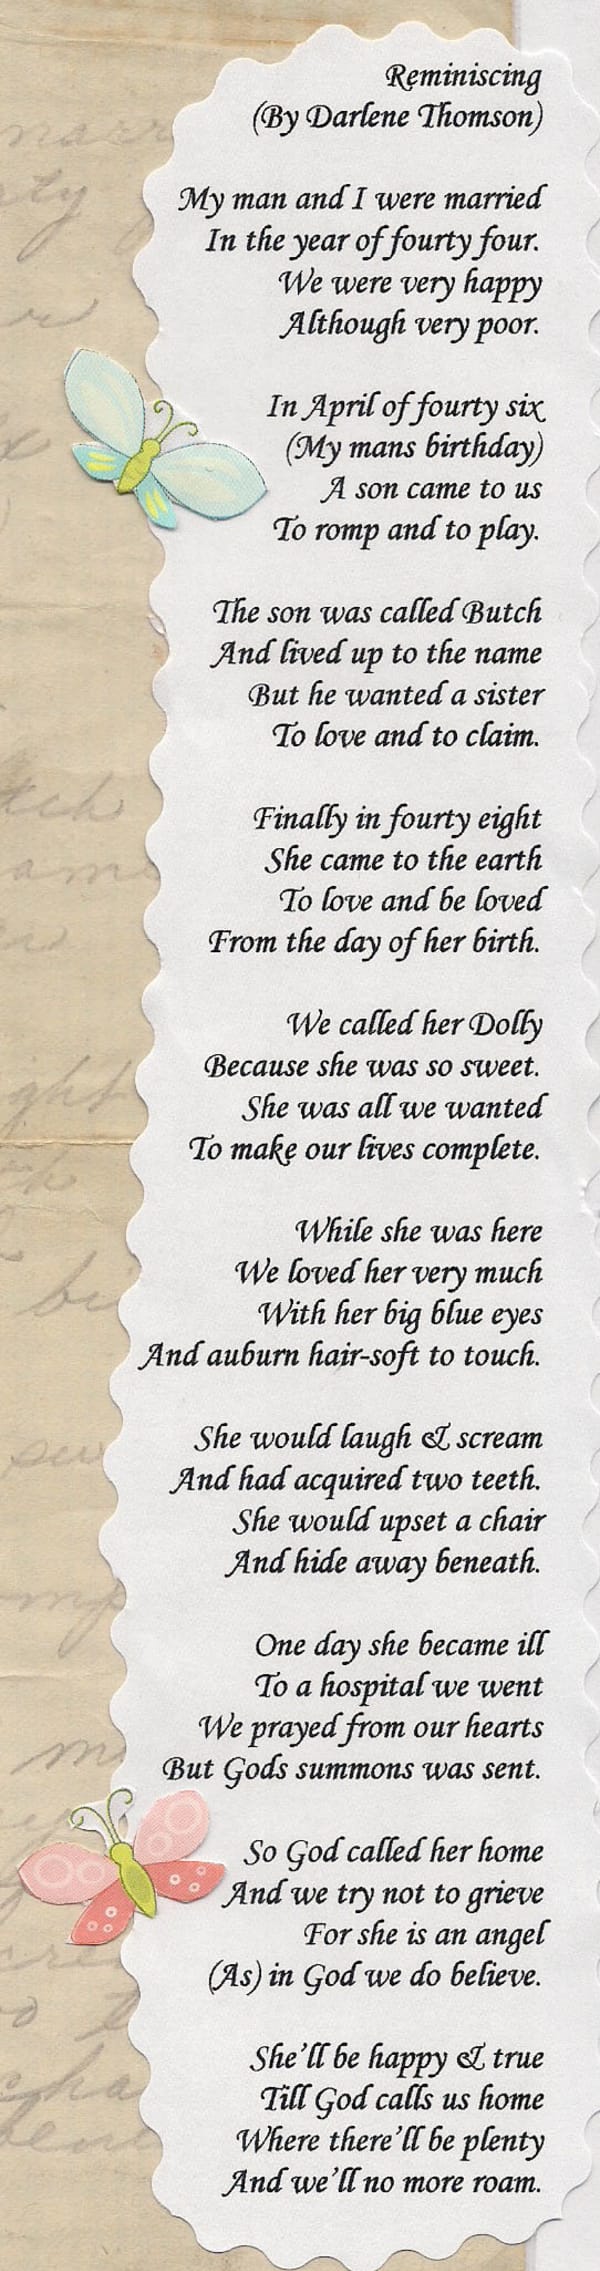 Reminiscing
(By Darlene Thomson)
My man and I were married
In the year of fourty four.
We were very happy
Although very poor.
In April of fourty six
(My mans birthday)
A son came to us
To romp and to play.
The son was called Butch
And lived up to the name
But he wanted a sister
To love and to claim.
Finally in fourty eight
She came to the earth
To love and be loved
From the day of her birth.
We called her Dolly
Because she was so sweet.
She was all we wanted
To make our lives complete.
While she was here
We loved her very much
With her big blue eyes
And auburn hair-soft to touch.
She would laugh & scream
And had acquired two teeth.
She would upset a chair
And hide away beneath.
One day she became ill
To a hospital we went
We prayed from our hearts
But Gods summons was sent.
So God called her home
And we try not to grieve
For she is an angel
(As) in God we do believe.
She'll be happy & true
Till God calls us home
Where there'll be plenty
And we'll no more roam.